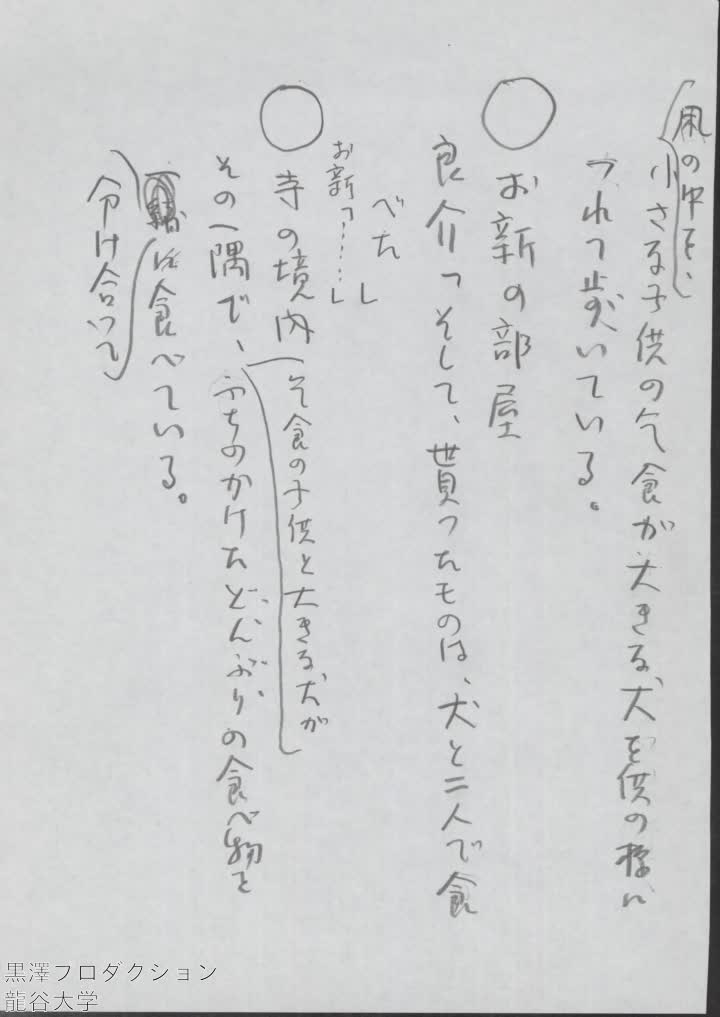 凩の中を、
小さな子供の乞食が大きな犬を供の様に
つれて歩いている。
○ お新の部屋
良介「そして、貰ったものは、犬と二人で食
べた」
お新「……」
○ 寺の境内
乞食の子供と大きな犬が
その一隅で、ふちのかけたどんぶりの食べ物を
に食べている。
分け合って
黒澤プロダクション
龍谷大学